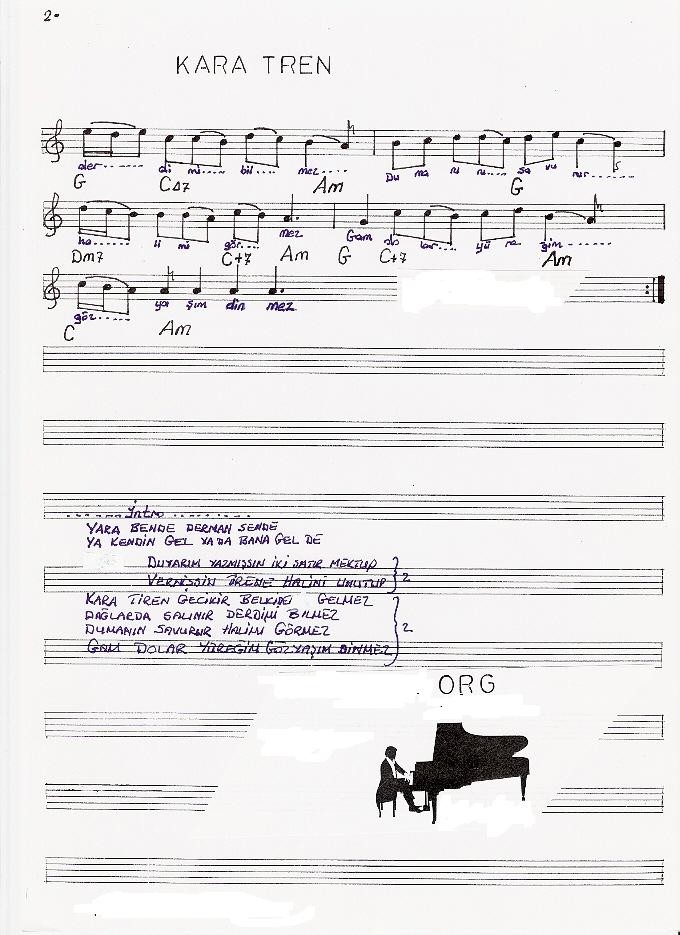 2.
KARA TREN
der...... di mi..... bil.... mez.... Du ma nı nı.... sa vu rur.......
G C∆7 Am G
ha...... li mi gör.... mez Gam do lar.... yü re ğim ......
Dm7 C+7 Am G C+7 Am
göz...... ya şım din mez
C Am
...... İntro ......
YARA BENDE DERMAN SENDE
YA KENDİN GEL YADA BANA GEL DE
DUYARIM YAZMIŞSIN İKİ SATIR MEKTUP
VERMİŞSİN TRENE HALİNİ UNUTUP 2
KARA TİREN GECİKİR BELKİDE GELMEZ
DAĞLARDA SALINIR DERDİMİ BİLMEZ
DUMANIN SAVURUR HALİMİ GÖRMEZ 2
GAM DOLAR YÜREĞİM GÖZYAŞIM DİNMEZ
ORG